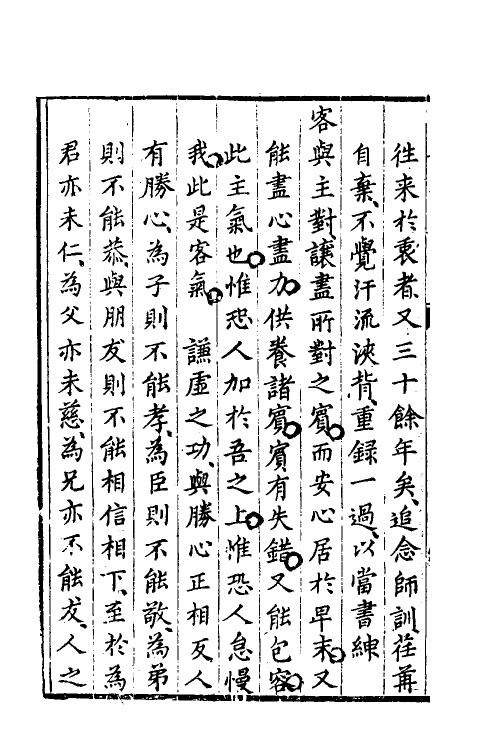 往来於衷者又三十餘年矣追念師訓荏苒
自棄不覺汗流浹背重録一過以當書紳
客與主對讓盡所對之賔而安心居於卑末又
能盡心盡力供養諸賔賔有失錯又能包容
此主氣也惟恐人加於吾之上惟恐人怠慢
我此是客氣　謙虛之功與勝心正相反人
有勝心為子則不能孝為臣則不能敬為弟
則不能恭與朋友則不能相信相下至於為
君亦未仁為父亦未慈為兄亦不能友人之